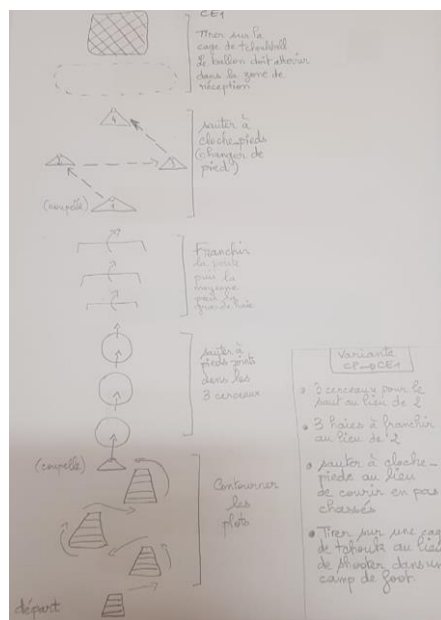 CE1
Tirer sur la
cage de tchoukball
Le ballon doit atterrir
dans la zone de
réception
4
sauter à
cloche-pieds
(changer de
pied)
2
3
(coupelle)
1
Franchir
la petite
puis la
moyenne
puis la
grande haie
sauter à
pieds joints
dans les
3 cerceaux
(coupelle)
Contourner
les
plots
départ
Variante
CP → CE1
• 3 cerceaux pour le
saut au lieu de 2
• 3 haies à franchir
au lieu de 2
• sauter à cloche-
pieds au lieu
de courir en pas
chassés
• Tirer sur une cage
de tchouk au lieu
de shooter dans un
camp de foot